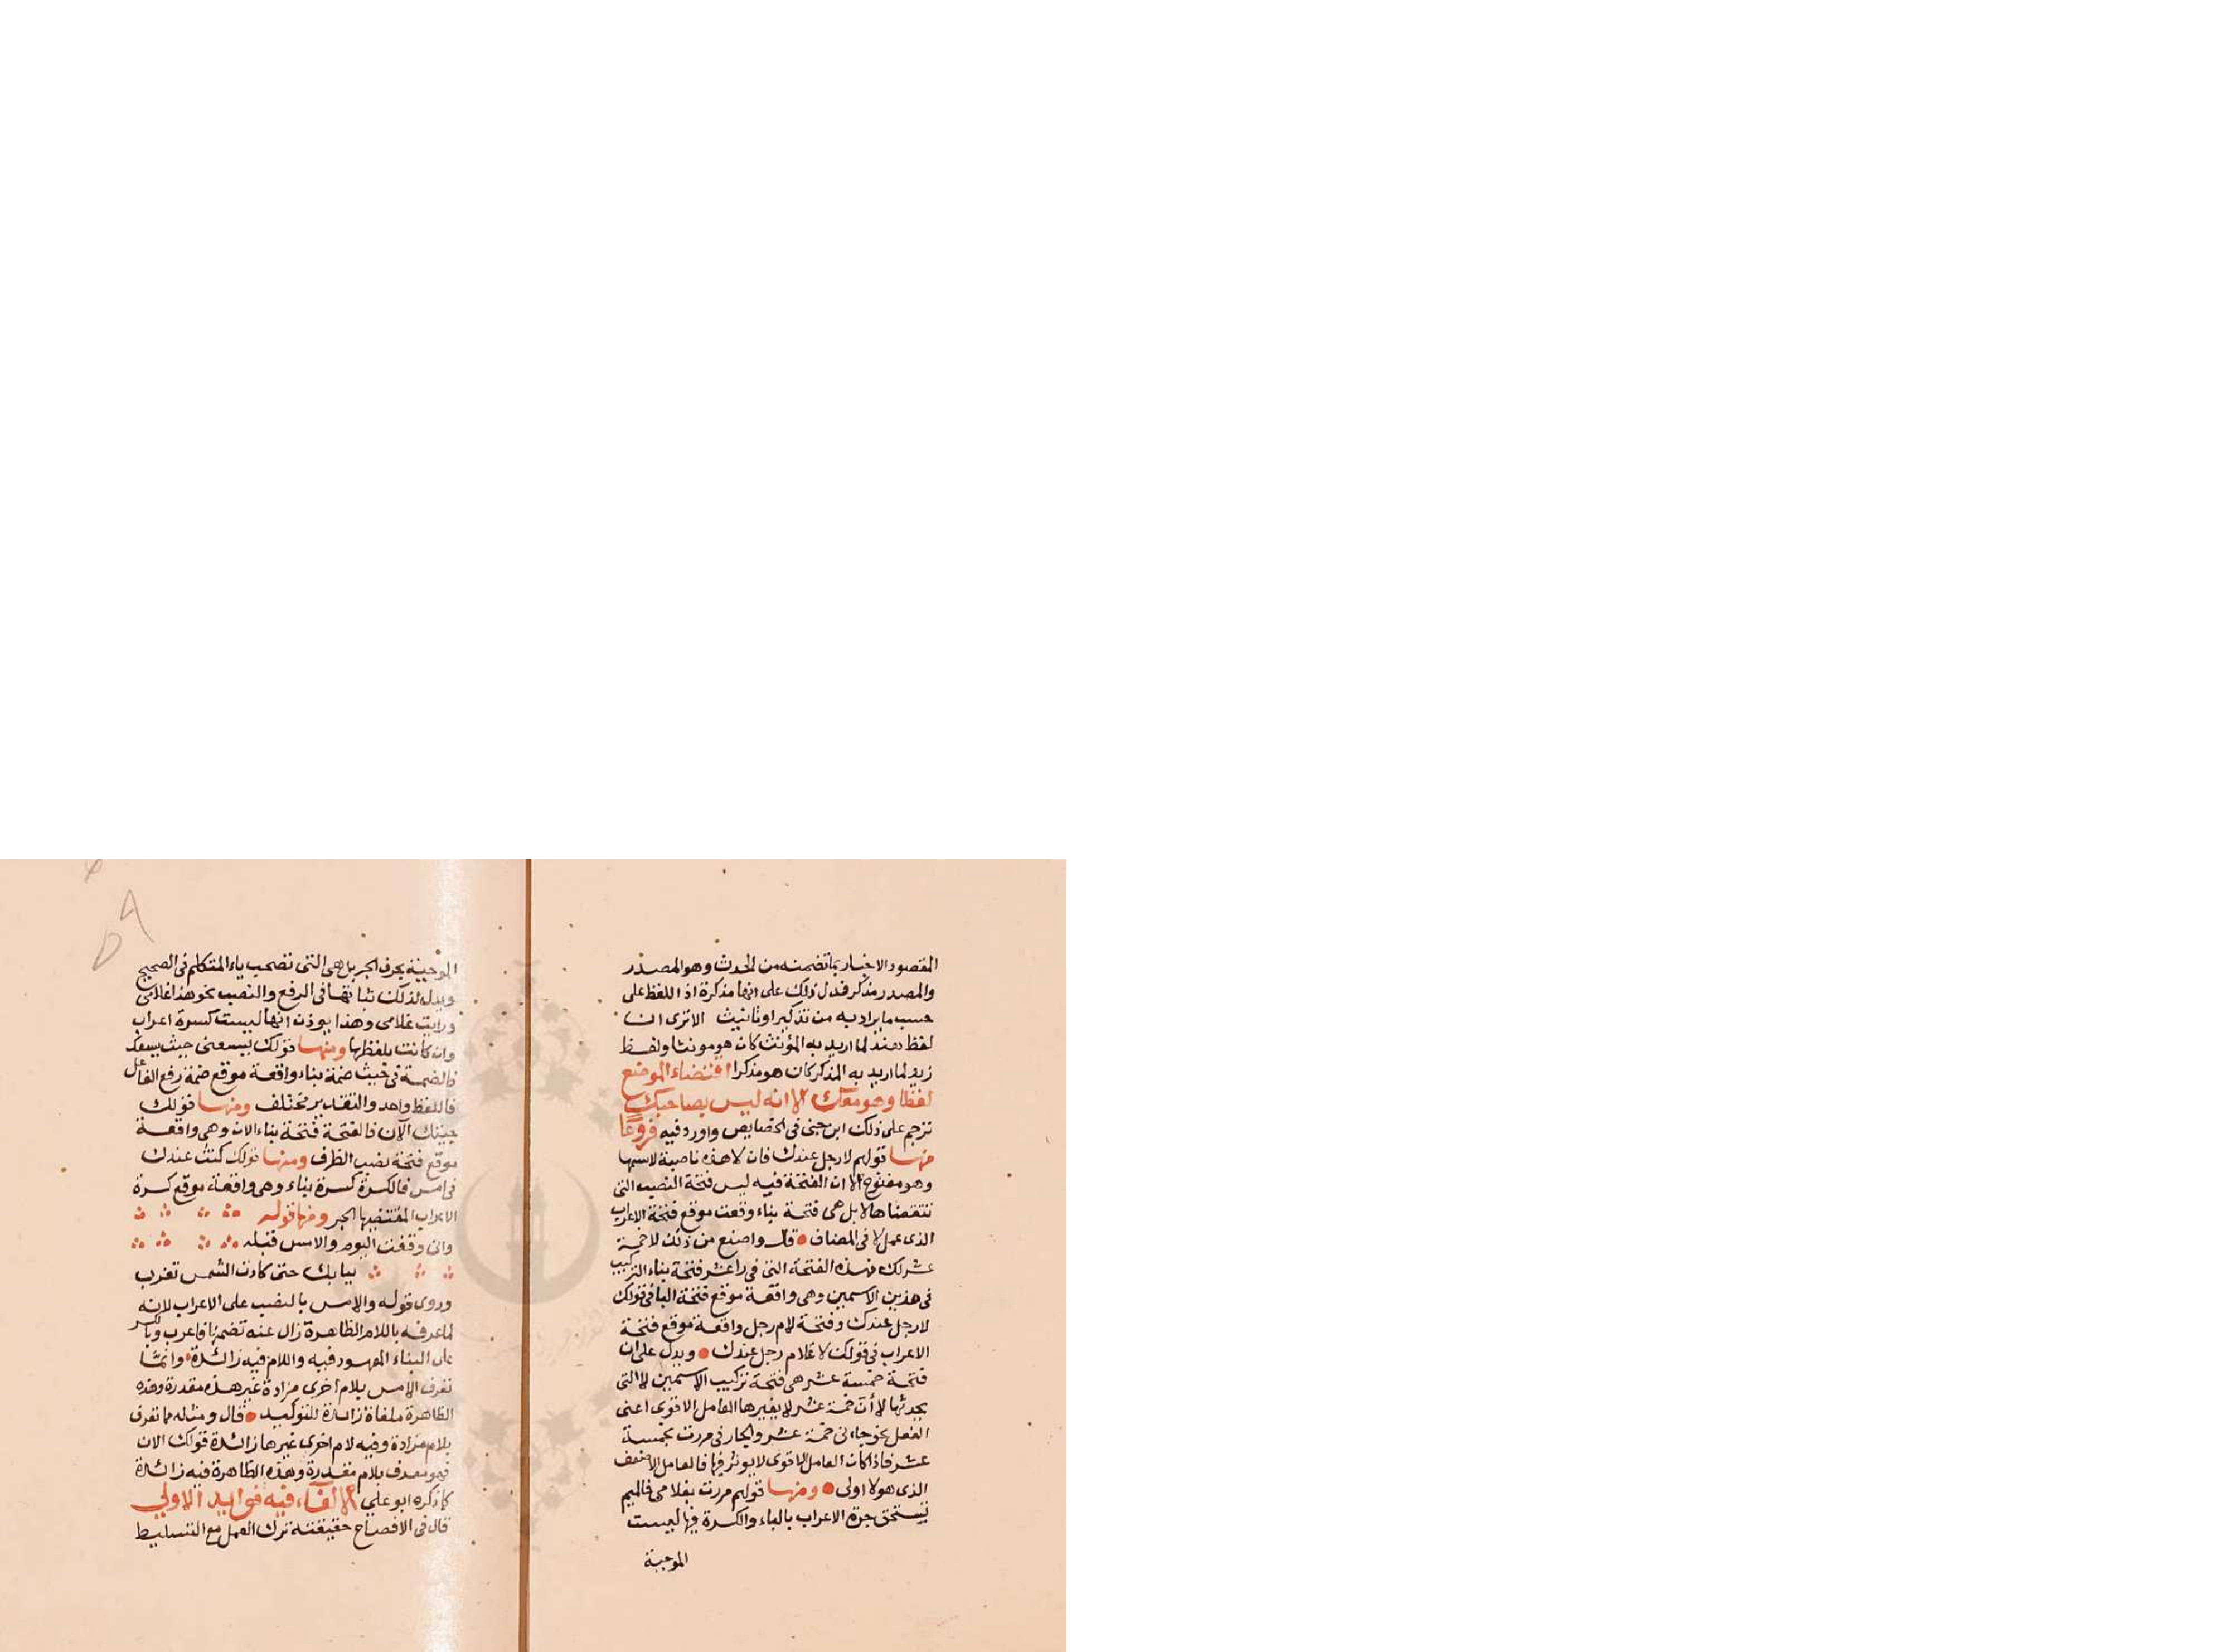 المقصود الاخبار بما تضمنه من الحدث وهو المصدر
والمصدر مذكر فدل ذلك على انها مذكرة اذ اللفظ على
حسب ما يراد به من تذكير او تانيث الا ترى ان
لفظ هند لما اريد به المؤنث كان هو مونثا ولفظ
زيد لما اريد به المذكر كان هو مذكرا اقتضاء الموضع
لفظا وهو معك الا انه ليس بصاحبك
ترجم على ذلك ابن جنى فى الخصايص واورد فيه فروعًا
منها قولهم لا رجل عندك فان لا هذه ناصبة لاسمها
وهو مفتوح الا ان الفتحة فيه ليس فتحة النصب التى
تتقضاها لا بل هى فتحة بناء وقعت موقع فتحة الاعراب
الذى عمل لا فى المضاف قال واصنع من ذلك لا خمسة
عشر لك فهذه الفتحة التى فى راء عشر فتحة بناء التركيب
فى هذين الاسمين وهى واقعة موقع فتحة البناء فى قولك
لا رجل عندك وفتحة لام رجل واقعة موقع فتحة
الاعراب فى قولك لا غلام رجل عندك ويدل على ان
فتحة خمسة عشر هى فتحة تركيب الاسمين لا التى
يحدثها لا أن خمسة عشر لا يغيرها العامل الاقوى اعنى
الفعل نحو جاءنى خمسة عشر والجار فى مررت بخمسة
عشر فاذا كان العامل الاقوى لا يوثر فيها فالعامل الاضعف
الذى هو لا اولى ومنها قولهم مررت بغلامى فالميم
تستحق جرة الاعراب بالباء والكسرة فيها ليست
الموجبة
الموجبة بحرف الجر بل هى التى تصحب ياء المتكلم فى الصحيح
ويدل لذلك ثباتها فى الرفع والنصب نحو هذا غلامى
ورايت غلامى وهذا يوذن انها ليست كسرة اعراب
وان كانت بلفظها ومنها قولك يسعنى حيث يسعك
فالضمة فى حيث ضمة بناء واقعة موقع ضمة رفع الفاعل
فاللفظ واحد والتقدير مختلف ومنها قولك
جيتك الآن فالفتحة فتحة بناء الان وهى واقعة
موقع فتحة نصب الظرف ومنها قولك كنت عندك
فى امس فالكسرة كسرة بناء وهى واقعة موقع كسرة
الاعراب المقتضيها الجر ومنها قوله
وانى وقفت اليوم والامس قبله
ببابك حتى كادت الشمس تغرب
وروى قوله والامس بالنصب على الاعراب لانه
لما عرفه باللام الظاهرة زال عنه تضمنها فاعرب وبالكسر
على البناء المعهود فيه واللام فيه زائدة وانما
تعرف الامس بلام اخرى مرادة غير هذه مقدرة وهذه
الظاهرة ملغاة زائدة للتوكيد قال ومثله مما تعرف
بلام مرادة وفيه لام اخرى غيرها زائدة قولك الان
فهو معرف بلام مقدرة وهذه الظاهرة فيه زائدة
كما ذكره ابو على الالغاء فيه فوايد الاولى
قال فى الافصاح حقيقته ترك العمل مع التسليط